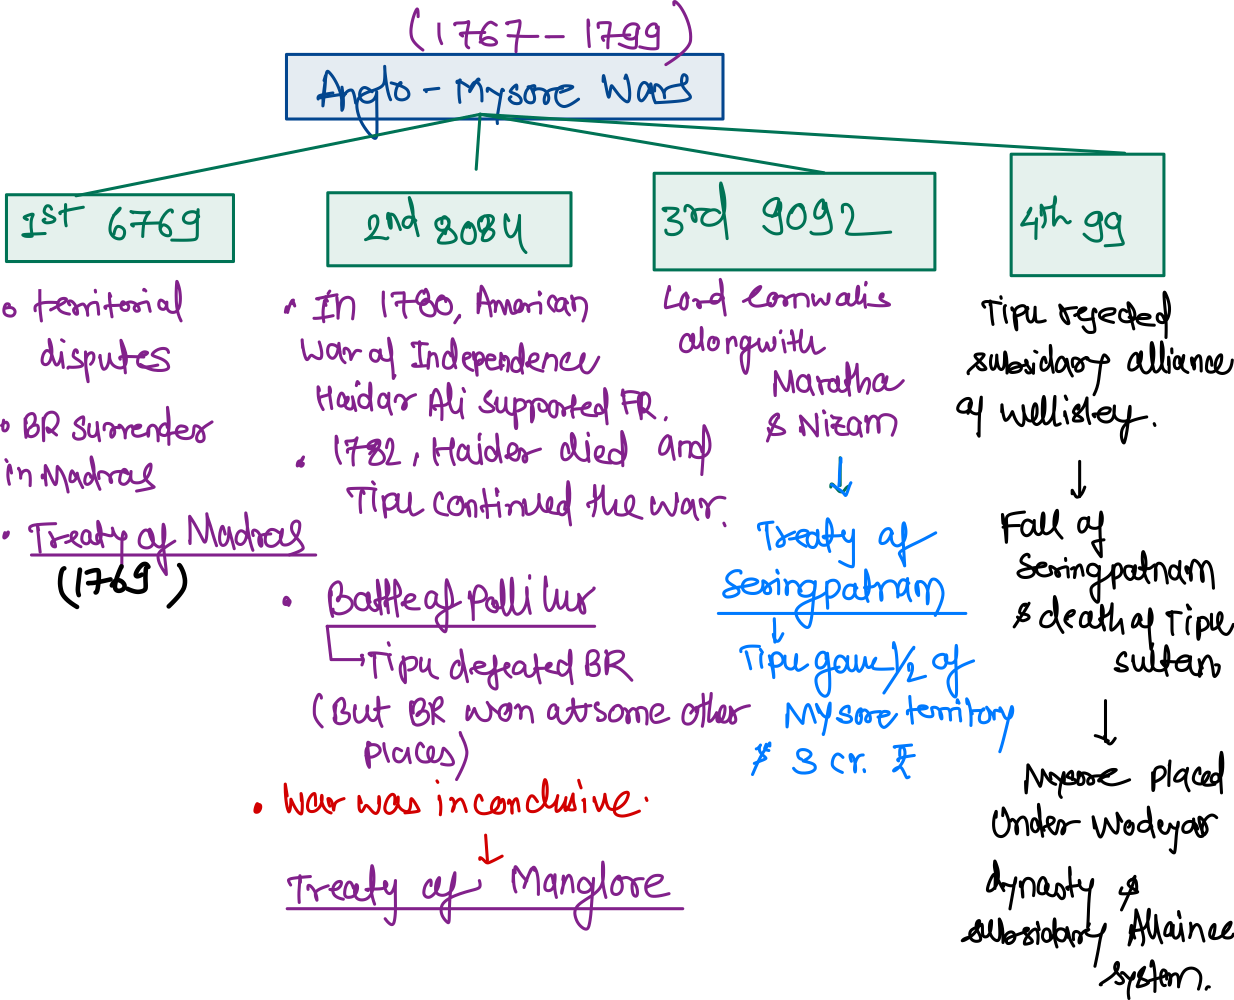 (1767 - 1799)
Anglo - Mysore Wars
1st 6769
o territorial
disputes
o BR Surrender
in Madras
• Treaty of Madras
(1769)
2nd 8084
• In 1780, American
War of Independence
Haidar Ali supported FR.
• 1782, Haider died and
Tipu continued the war.
• Battle of Pollilur
Tipu defeated BR
(But BR won at some other
places)
• War was inconclusive.
↓
Treaty of Manglore
3rd 9092
Lord Cornwalis
alongwith
Maratha
& Nizam
↓
Treaty of
Seringpatnam
↓
Tipu gave 1/2 of
Mysore territory
& 3 cr. ₹
4th 99
Tipu rejected
subsidary alliance
of Wellisley.
↓
Fall of
Seringpatnam
& death of Tipu
sultan
↓
Mysore placed
Under Wodeyar
dynasty &
subsidary Allaince
system.